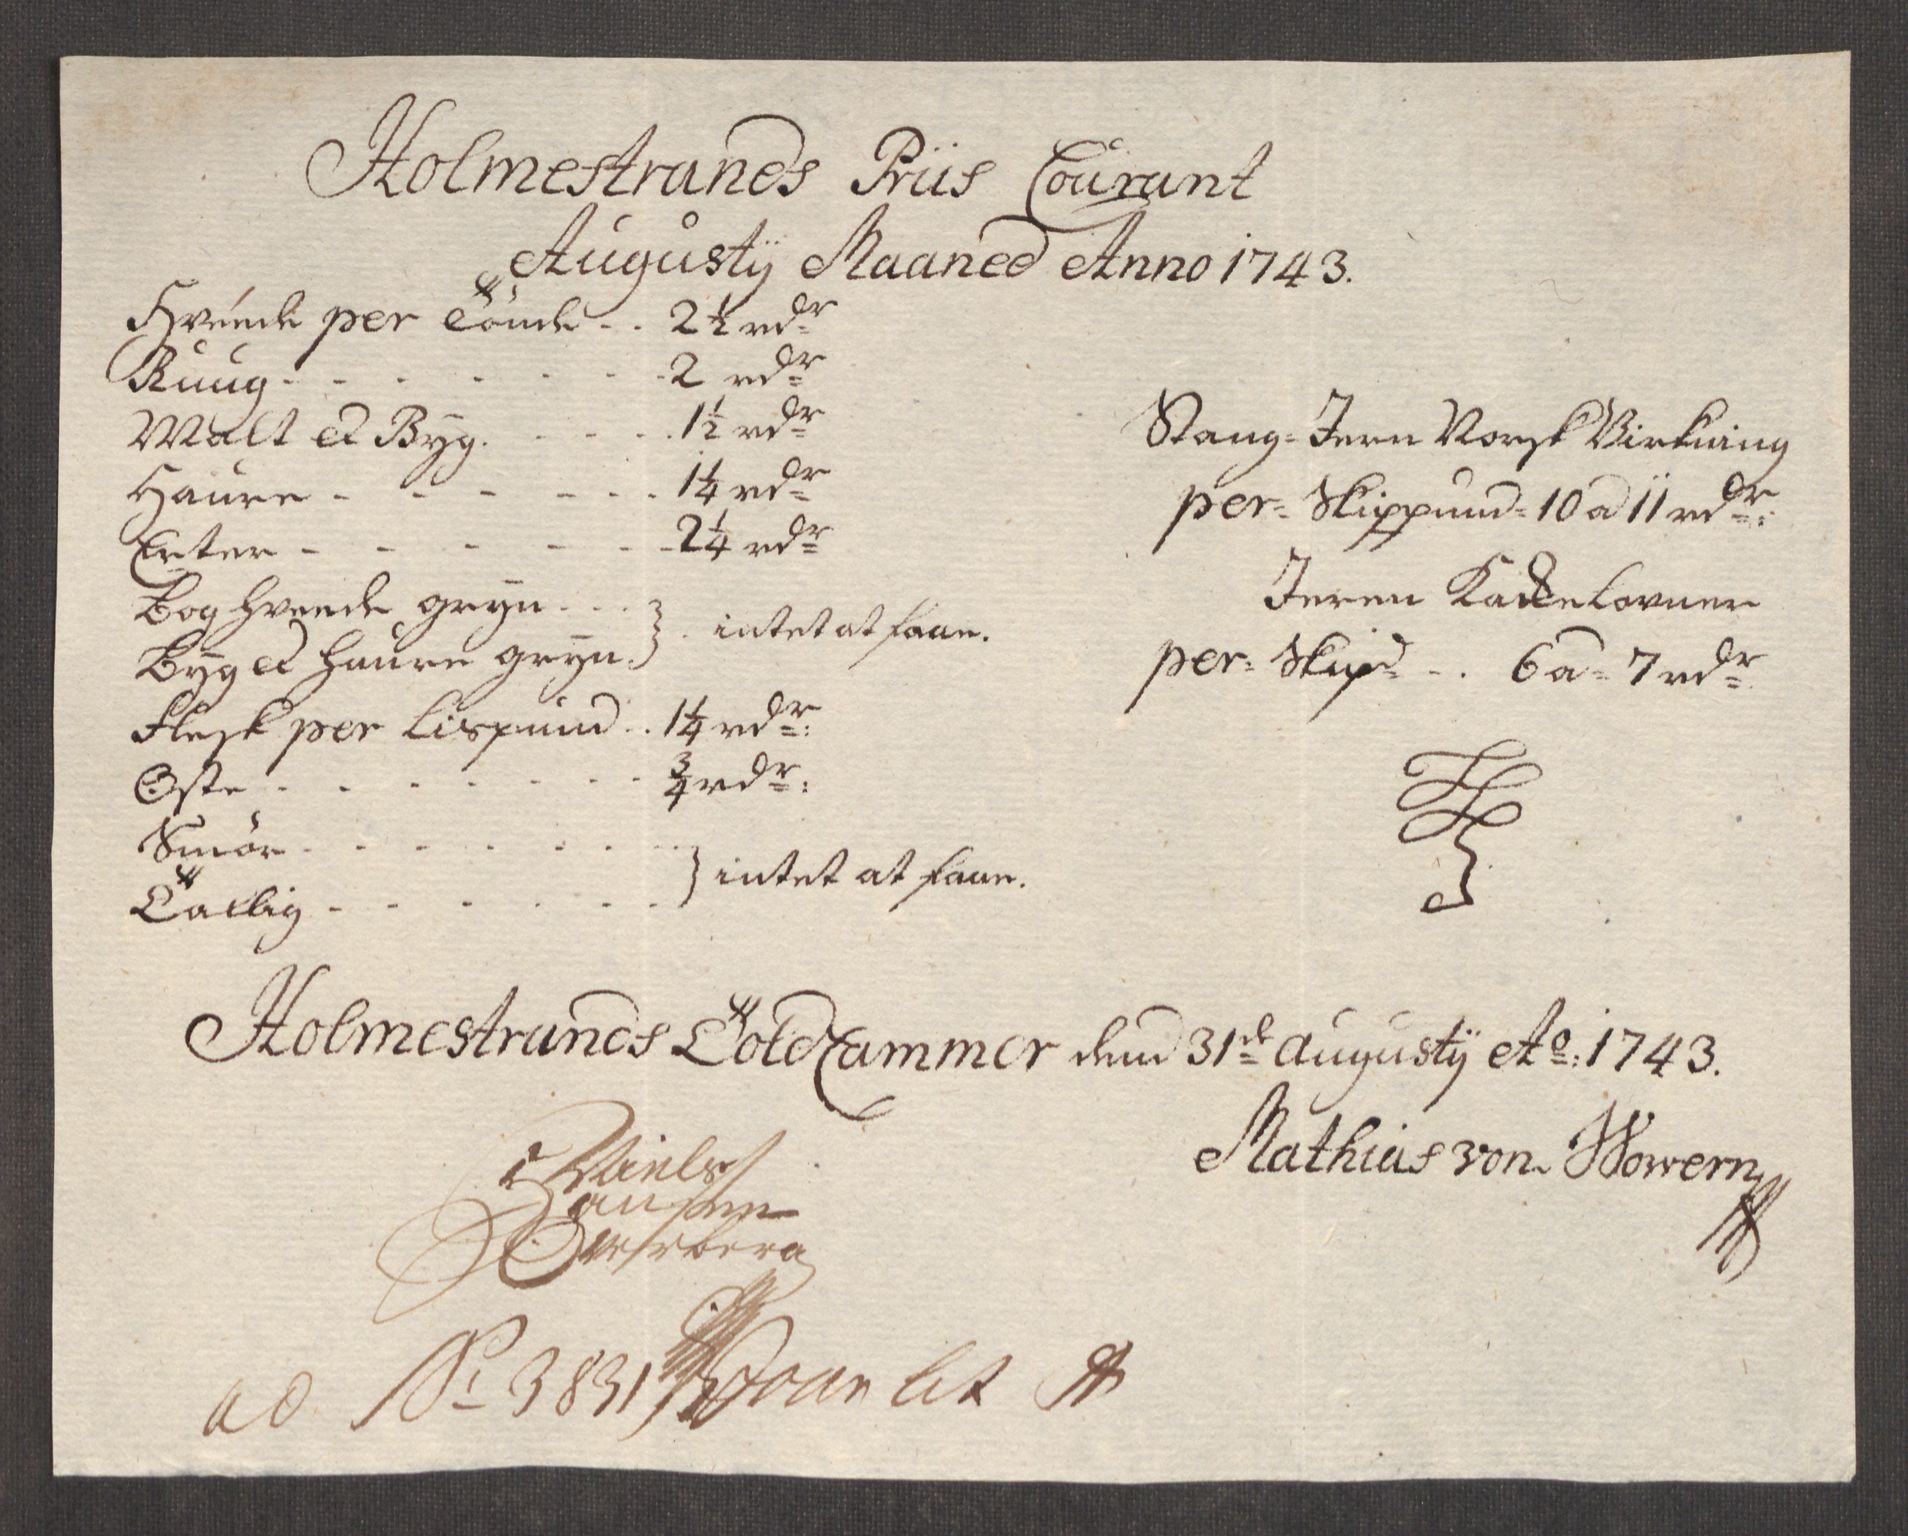 Holmestrands Priis Courant
Augustÿ Maaned Anno 1743.
Hveede per Tönde . . 2 1/2 rdr
Ruug . . . . . . . 2 rdr
Malt et Byg . . . . . 1 1/2 rdr
Haure . . . . . . 1 1/4 rdr
Erter . . . . . . . 2 1/4 rdr
Boghveede gryn . . . } intet at faae.
Byg et Haure gryn. }
Flesk per Lispund . . 1 1/4 rdr:
Oste . . . . . . . 3/4 rdr:
Smör . . . . . . . } intet at faae.
Tallig . . . . . . }
Stang-Jern Norsk Virkning
per Skippund 10 a 11 rdr:
Jeren Kackelovner
per Skipd . . 6 a 7 rdr
Holmestrands Told Cammer dend 31de Augustÿ Ao: 1743.
Mathias von Wowern
Niels
Hansen
Overberg
ad No 3831 lit A